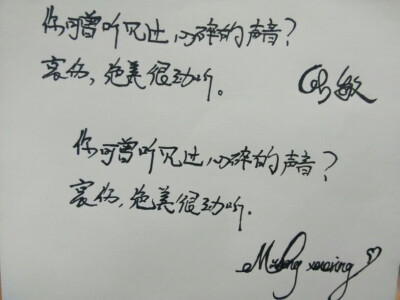 你可曾听见过心碎的声音？
哀伤，绝美很动听。
敏
你可曾听见过心碎的声音？
哀伤，绝美很动听.